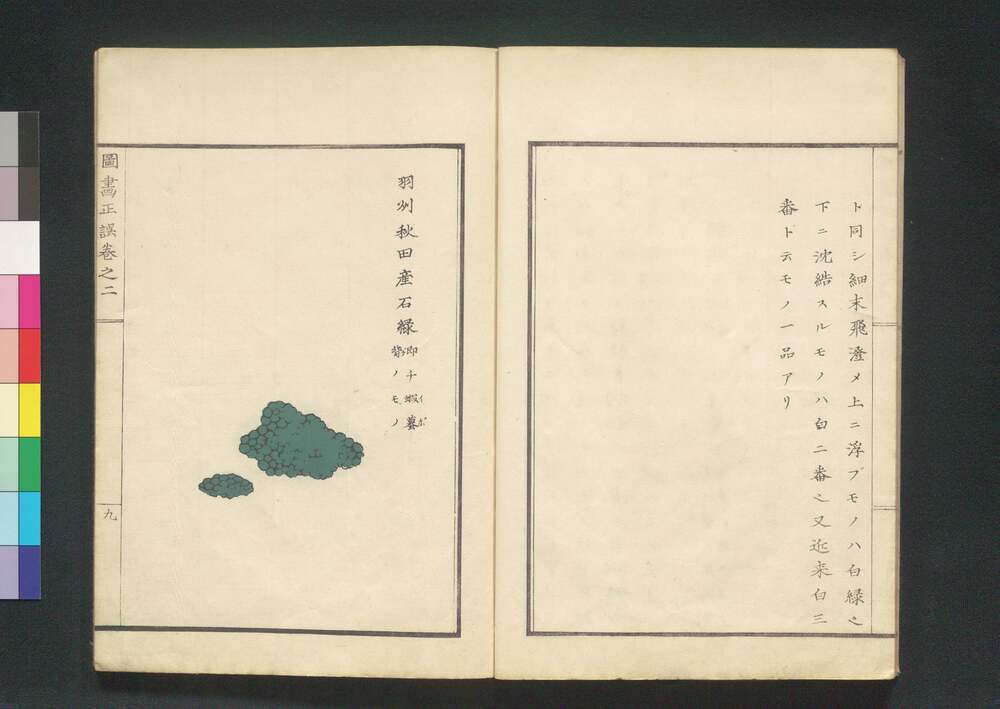 ト同シ細末飛澄メ上ニ浮ブモノハ白緑之
下ニ沈結スルモノハ白二番之又近来白三
番ト云モノ一品アリ
羽州秋田産石緑
即チ蝦蟇
イボ
ノモノ
圖書正誤巻之二
九